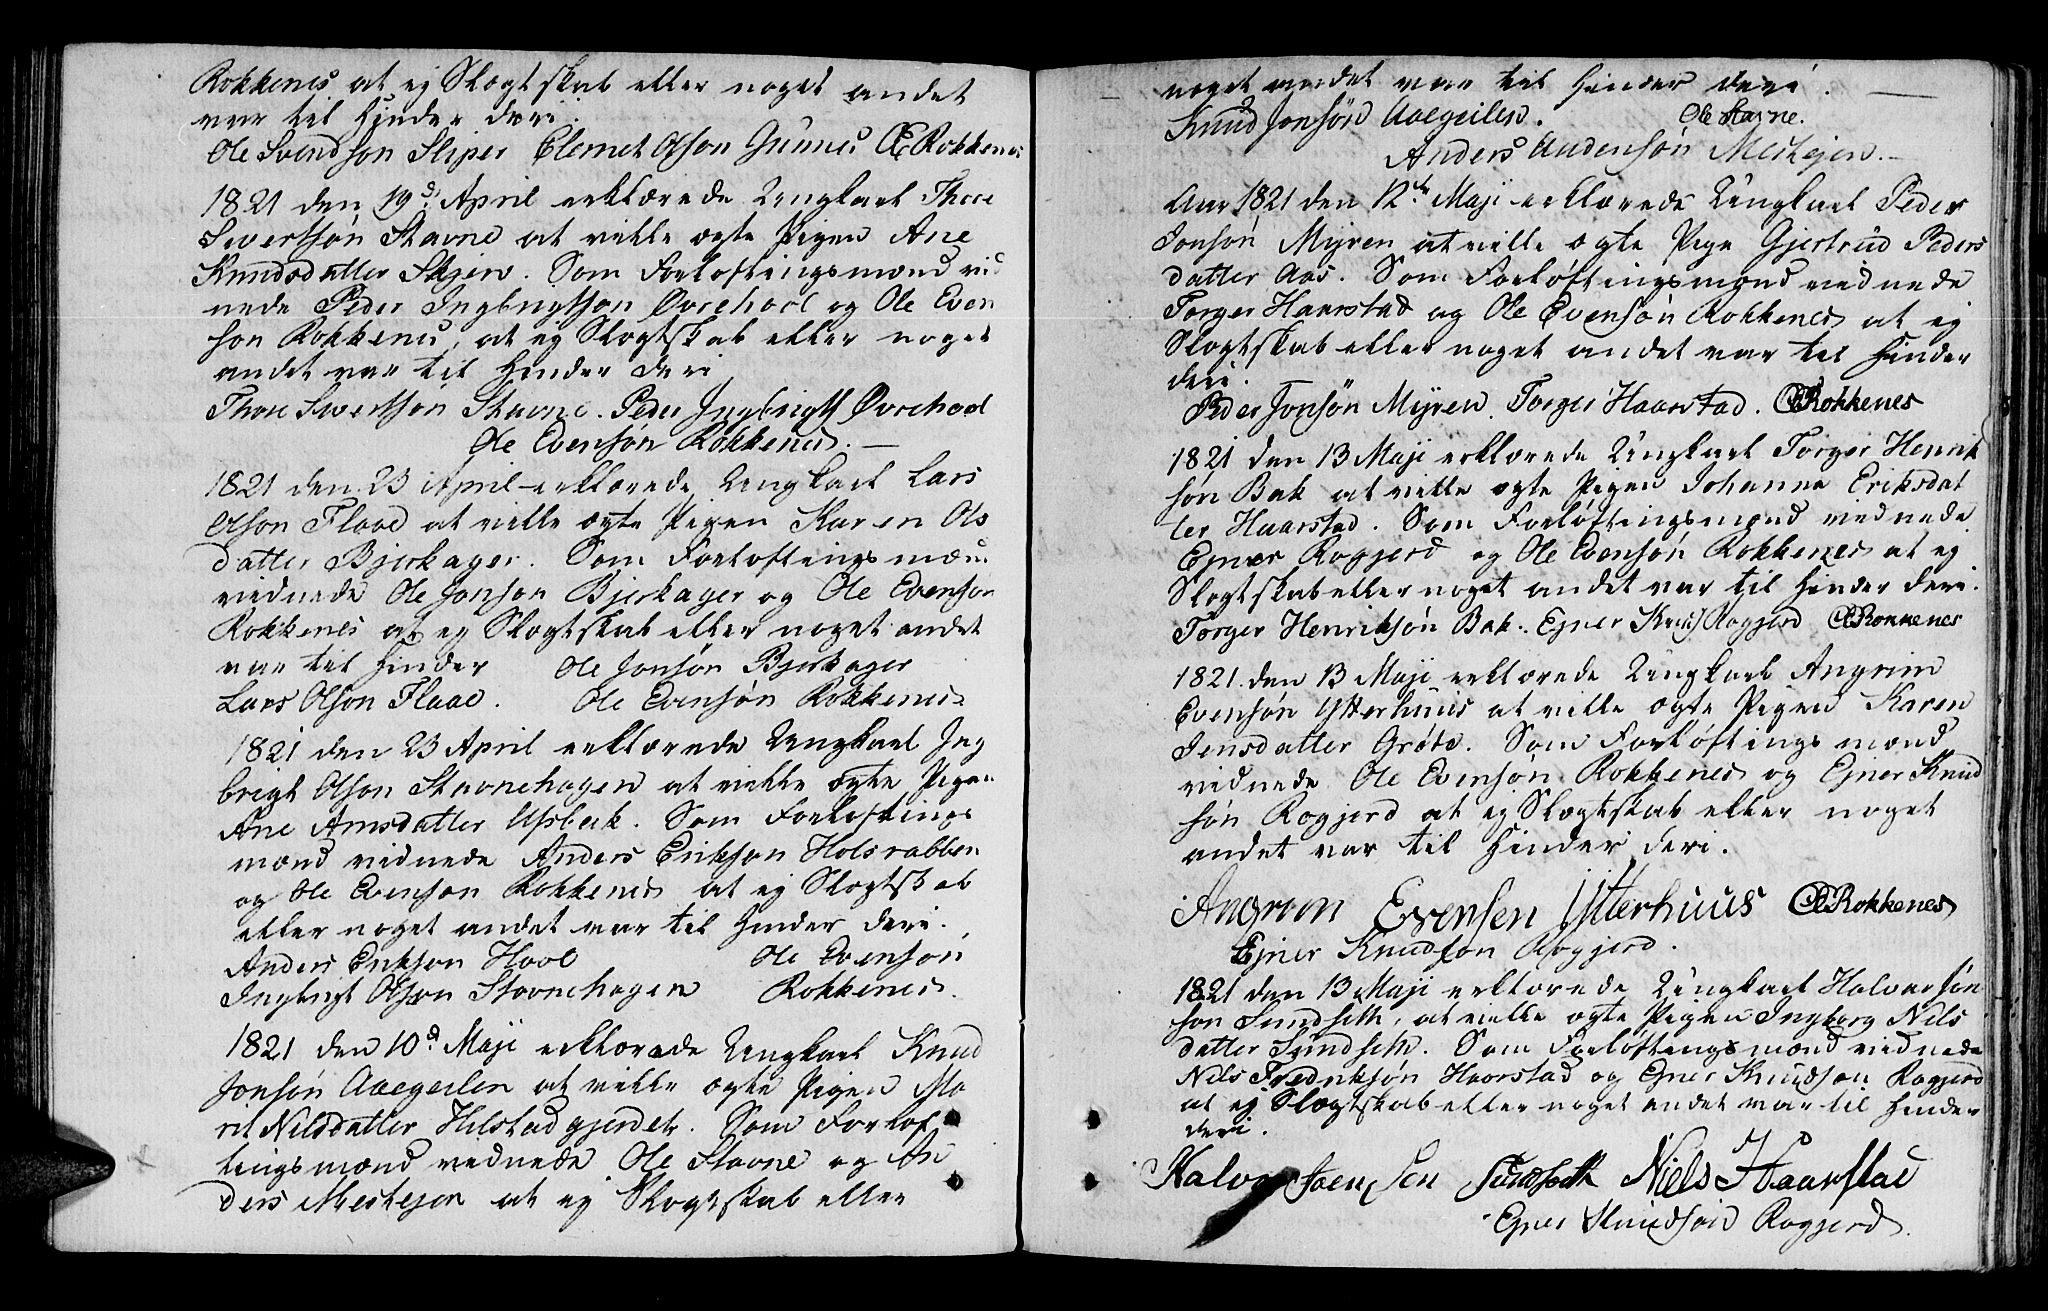 Rokkenes at ej Slægtskab eller noget andet
var til Hinder deri.
Ole Svendson Sliper Clemet Olson Gunnes OERokkenes
1821 den 19d. April erklærede Ungkarl Thore
Sivertsøn Stavne at ville ægte Pigen Ane
Knudsdatter Skjen. Som Forloftningsmænd vid
nede Peder Ingbrigtson Øvrehoel og Ole Even
son Rokkenes, at ej Slægtskab eller noget
andet var til Hinder deri
Thore Sivertsøn Stavne. Peder Ingbrigts Øvrehoel
Ole Evensøn Rokkenes. —
1821 den 23 April erklærede Ungkarl Lars
Olson Flaae at ville ægte Pigen Karen Ols
datter Bjerkager. Som Forloftningsmæn
vidnede Ole Jonson Bjerkager og Ole Evenson
Rokkenes at ej Slægtskab eller noget andet
var til Hinder Ole Jonsøn Bjerkager
Lars Olson Flaae. Ole Evensøn Rokkenes
1821 den 23 April erklærede Ungkarl Ing
brigt Olson Stavnehagen at ville ægte Pigen
Ane Arnsdatter Usbek. Som Forloftnings
mænd vidnede Anders Erikson Holsrabben
og Ole Evenson Rokkenes at ej Slægtskab
eller noget andet var til Hinder deri.
Anders Erikson Hool Ole Evenson
Ingbrigt Olson Stavnehagen Rokkenes.
1821 den 10d. Maji erklærede Ungkarl Knud
Jonsøn Aaegeilen at ville ægte Pigen Ma
rit Nilsdatter Hilstadgjerdet. Som Forlof
tingsmænd vidnede Ole Stavne og An
ders Meshejen at ej Slægtskab eller
noget andet var til Hinder deri. —
Knud Jonsøn Aaegeilen. Ole Stavne.
Anders Andensøn Meshejen. —
Aar 1821 den 12te Maji erklærede Ungkarl Peder
Jonsøn Myren at ville ægte Pige Gjertrud Peders
datter Aas. Som Forløftningsmænd vidnede
Torger Haarstad og Ole Evensøn Rokkenes at ej
Slægtskab eller noget andet var til Hinder
deri.
Peder Jonsøn Myren. Torger Haarstad. OERokkenes
1821 den 13 Maji erklærede Ungkarl Torger Henrik
søn Bak at ville ægte Pigen Johanna Eriksdat
ter Haarstad. Som Forløftningsmænd vidnede
Ejner Rogjerd og Ole Evensøn Rokkenes at ej
Slægtskab eller noget andet var til Hinder deri.
Torger Henriksøn Bak. Ejner Knuds Rogjerd OERokkenes
1821 den 13 Maji erklærede Ungkarl Angrim
Evensøn Ytterhuus at ville ægte Pigen Karen
Jensdatter Grøte. Som Forløftningsmænd
vidnede Ole Evensøn Rokkenes og Ejner Knud
søn Rogjerd at ej Slægtskab eller noget
andet var til Hinder deri.
Angrim Evensen Ytterhuus OERokkenes
Ejner Knudson Rogjerd.
1821 den 13 Maji erklærede Ungkarl Halvar Jøn
son Sundseth, at ville ægte Pigen Ingborg Nils
datter Sundseth. Som Forløftningsmænd vidnede
Nils Fredriksøn Haarstad og Ejner Knudson Rogjerd
at ej Slægtskab eller noget andet var til Hinder
deri.
Halvor Joensen Sundseth Niels Haarstad
Ejner Knudson Rogjerd.